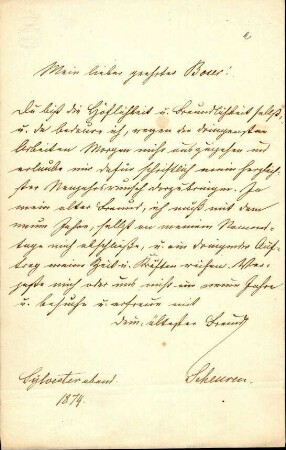 Mein lieber geehrter Boser!
Du bist die Höflichkeit u. Freundlichkeit selbst,
u. da bedaure ich, wegen der dringensten
Arbeiten Morgen nicht auszugehen und
erlaube mir dafür schriftlich einen herzlich-
sten Neujahrswunsch darzubringen. Ja
mein alter Freund, ich muß mit dem
neuen Jahre, selbst an meinem Namens-
tage mich abschließen, u. ein dringender Auf-
trag meine Zeit u. Kräften
mich oder uns mich im neuen Jahre
u. besuche u. erfreue mit
dem ältesten Freund
Scheuren.
Sylvesterabend
1874.